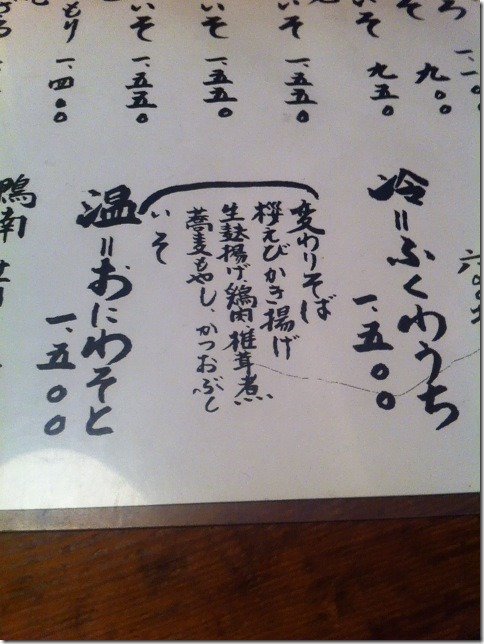 一、一〇
九〇
九五〇
いそ
一、五五〇
いそ
一、五五〇
いそ
一、五五〇
もり
一、四〇〇
冷=ふくわうち
一、五〇〇
変わりそば
桜えびかき揚げ
生麩揚げ鶏肉、椎茸煮
蕎麦もやし、かつおぶし
いそ
温=おにわそと
一、五〇〇
鴨南